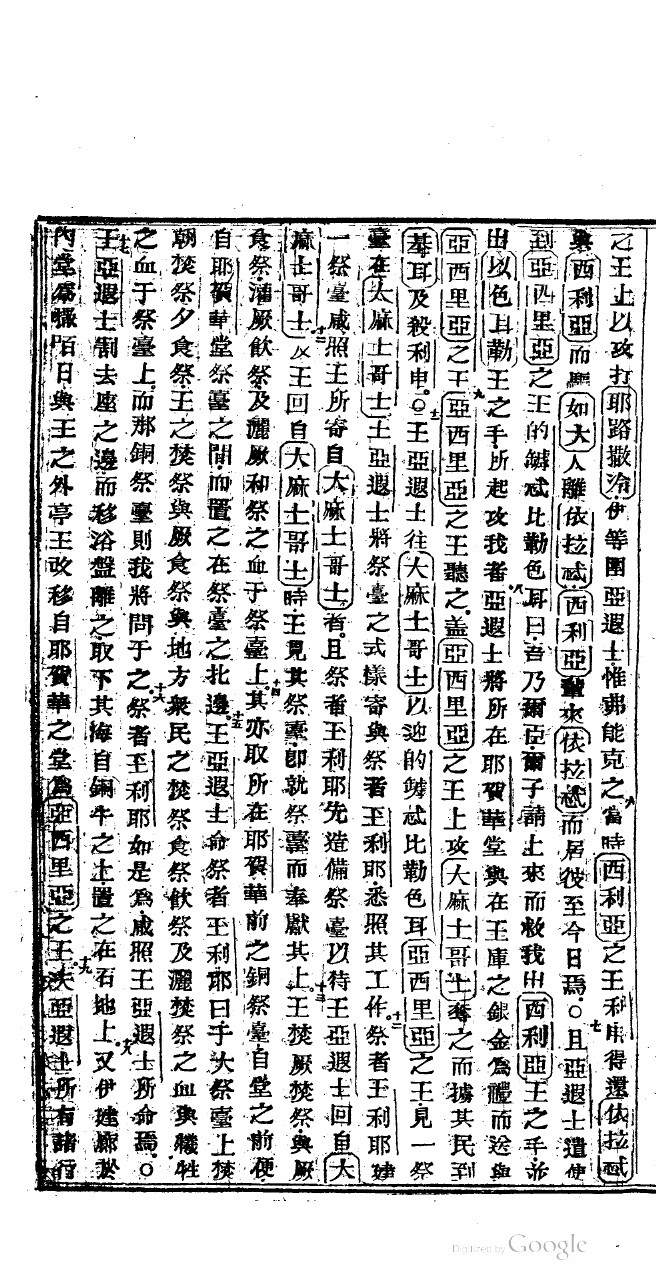 之王上以攻打耶路撒冷伊等圍亞遐士惟弗能克之六當時西利亞之王利申得還依拉忒
與西利亞而驅如大人離依拉忒西利亞輩來依拉忒而居彼至今日焉○七且亞遐士遣使
到亞西里亞之王的鏬忒比勒色耳曰吾乃爾臣爾子請上來而救我出西利亞王之手並
出以色耳勒王之手所起攻我者八亞遐士將所在耶賀華堂與在王庫之銀金為禮而送與
亞西里亞之王九亞西里亞之王聽之蓋亞西里亞之王上攻大麻士哥士奪之而擄其民到
基耳及殺利申○十王亞遐士往大麻士哥士以迎的鏬忒比勒色耳亞西里亞之王見一祭
臺在大麻士哥士王亞遐士將祭臺之式樣寄與祭者五利耶悉照其工作十一祭者五利耶建
一祭臺咸照王所寄自大麻士哥士者且祭者五利耶先造備祭臺以待王亞遐士回自大
麻士哥士十二及王回自大麻士哥士時王見其祭臺卽就祭臺而奉獻其上十三王焚厥焚祭與厥
食祭灌厥飲祭及灑厥和祭之血于祭臺上十四其亦取所在耶賀華前之銅祭臺自堂之前便
自耶賀華堂祭臺之間而置之在祭臺之北邊十五王亞遐士命祭者五利耶曰于大祭臺上焚
朝焚祭夕食祭王之焚祭與厥食祭與地方衆民之焚祭食祭飲祭及灑焚祭之血與犧牲
之血于祭臺上而那銅祭臺則我將問于之十六祭者五利耶如是為咸照王亞遐士所命焉○
十七王亞遐士割去座之邊而移浴盤離之取下其海自銅牛之上置之在石地上十八又伊建廊於
內堂為嘁咟日與王之外亭王改移自耶賀華之堂為亞西里亞之王十九夫亞遐士所有諸行
Digitized by Google